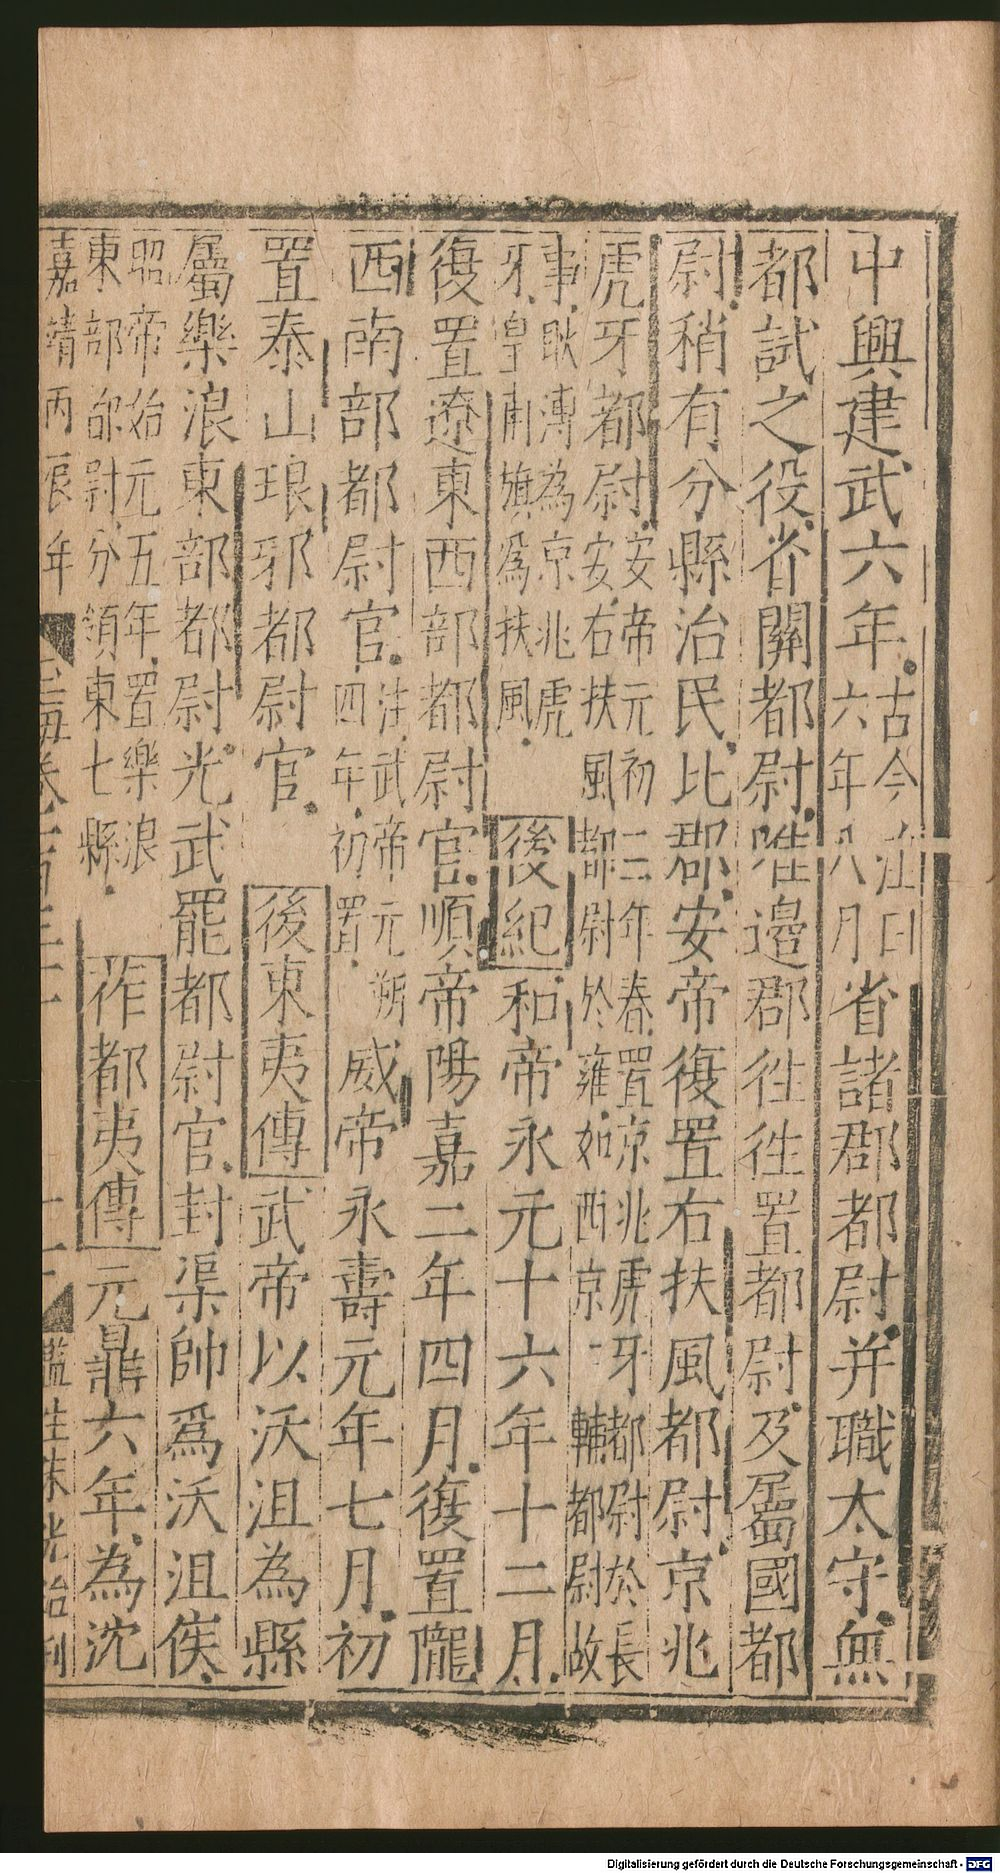 中興建武六年古今注曰六年八月省諸郡都尉并職太守無
都試之役省關都尉唯邊郡往往置都尉及屬國都
尉稍有分縣治民比郡安帝復置右扶風都尉京兆
虎牙都尉安帝元初二年春置京兆虎牙都尉於長安右扶風都尉於雍如西京二輔都尉故
事耿溥為京兆虎牙皇甫旗為扶風後紀和帝永元十六年十二月
復置遼東西部都尉官順帝陽嘉二年四月復置隴
西南部都尉官注武帝元朔四年初置威帝永壽元年七月初
置泰山琅邪都尉官後東夷傳武帝以沃沮為縣
屬樂浪東部都尉光武罷都尉官封渠帥為沃沮侯
昭帝始元五年置樂浪東部都尉分領東七縣莋都夷傳元鼎六年為沈
嘉靖丙辰年
Digitalisierung gefördert durch die Deutsche Forschungsgemeinschaft - DFG